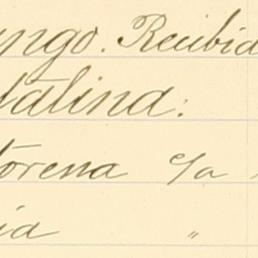 ungo. Recibid
talina:
torena c/a
ia "